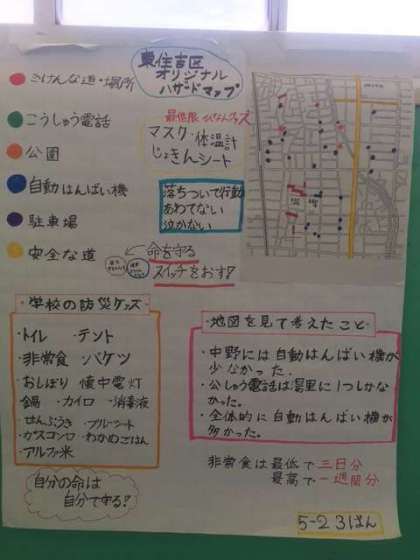 東住吉区
オリジナル
ハザードマップ
きけんな道・場所
こうしゅう電話
公園
自動はんばい機
駐車場
安全な道
最低限 ひなんグッズ
マスク・体温計
じょきんシート
落ちついて行動
あわてない
泣かない
命を守る
スイッチをおす?
学校の防災グッズ
・トイレ ・テント
・非常食 ・バケツ
・おしぼり 懐中電灯
・鍋 ・カイロ ・消毒液
・せんぷうき ・ブルーシート
・ガスコンロ ・わかめごはん
・アルファ米
自分の命は
自分で守る?
地図を見て考えたこと
・中野には自動はんばい機が
少なかった.
・公しゅう電話は湯里に1つしかな
かった。
・全体的に自動はんばい機が
多かった。
非常食は最低で三日分
最高で一週間分
5-2 3はん